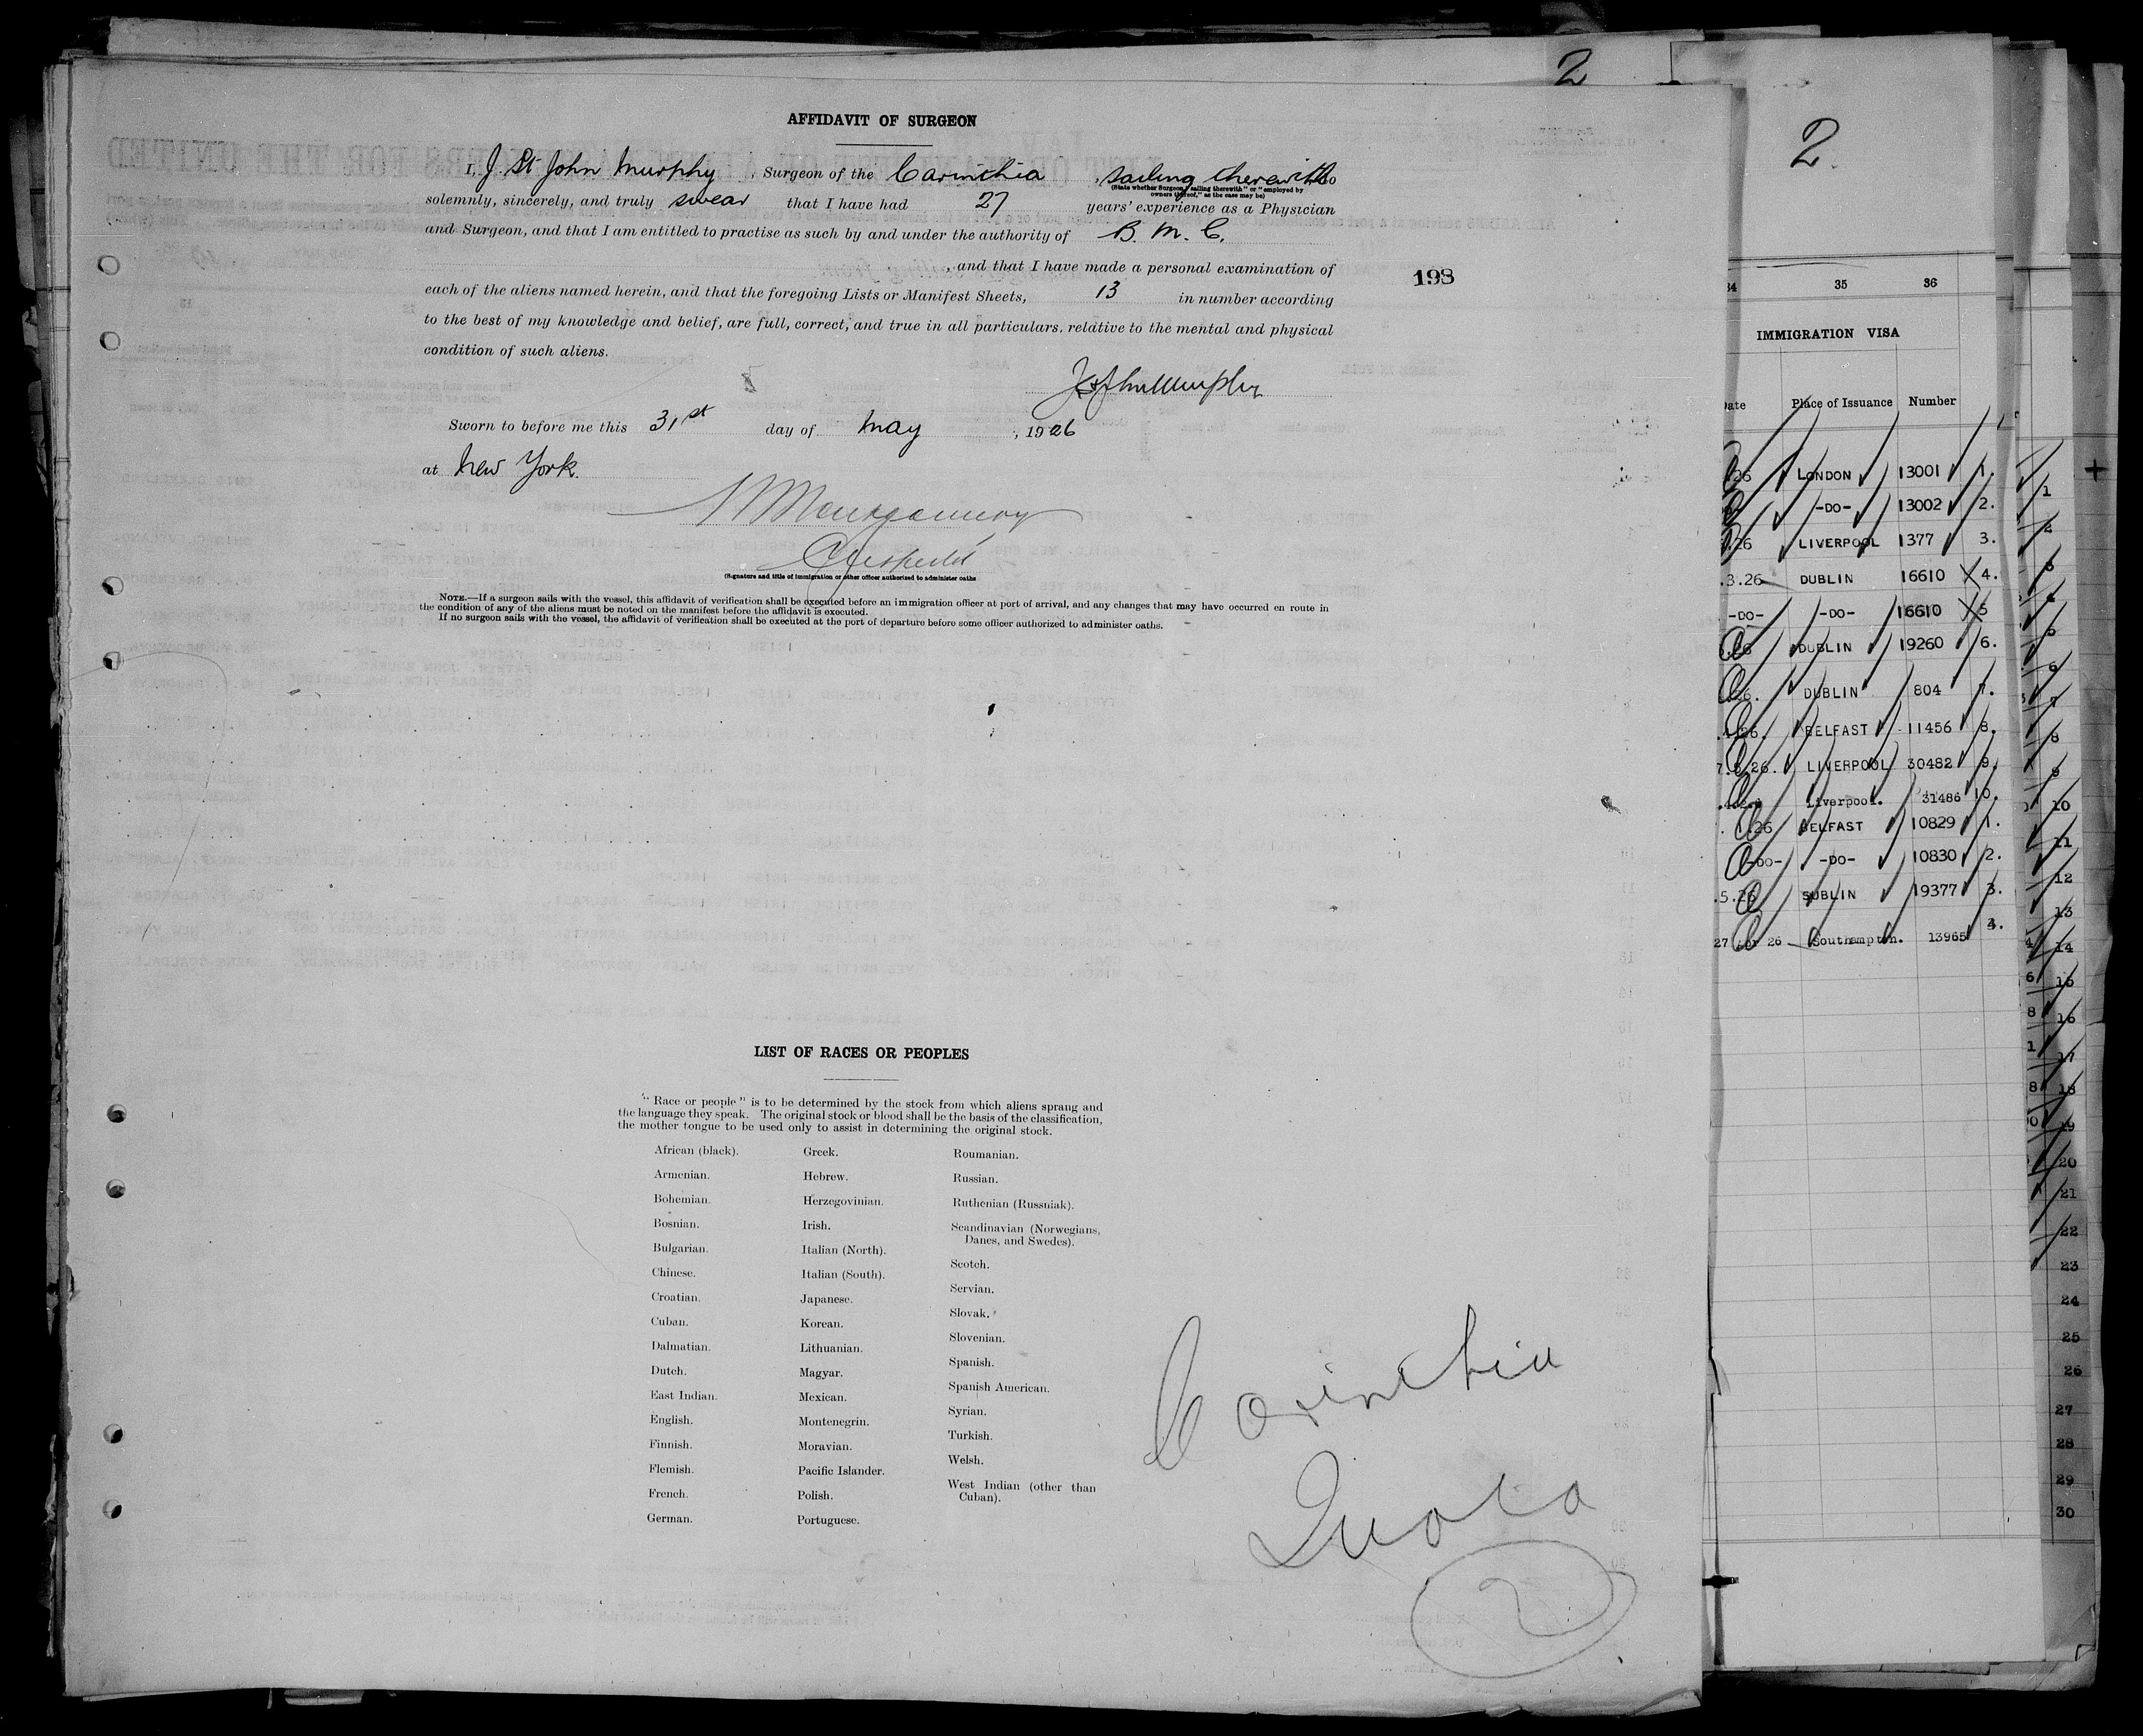 2
2
AFFIDAVIT OF SURGEON
I, J. St John Murphy, Surgeon of the Carinthia, sailing therewith, do
(State whether Surgeon "sailing therewith" or "employed by
owners thereof," as the case may be)
solemnly, sincerely, and truly swear that I have had 27 years' experience as a Physician
and Surgeon, and that I am entitled to practise as such by and under the authority of B. M. C.
, and that I have made a personal examination of
each of the aliens named herein, and that the foregoing Lists or Manifest Sheets, 13 in number according
to the best of my knowledge and belief, are full, correct, and true in all particulars, relative to the mental and physical
condition of such aliens.
198
J St John Murphy
Sworn to before me this 31st day of May, 1926
at New York.
Montgomery
(Signature and title of immigration or other officer authorized to administer oaths
NOTE.—If a surgeon sails with the vessel, this affidavit of verification shall be executed before an immigration officer at port of arrival, and any changes that may have occurred en route in
the condition of any of the aliens must be noted on the manifest before the affidavit is executed.
If no surgeon sails with the vessel, the affidavit of verification shall be executed at the port of departure before some officer authorized to administer oaths.
LIST OF RACES OR PEOPLES
"Race or people" is to be determined by the stock from which aliens sprang and
the language they speak. The original stock or blood shall be the basis of the classification,
the mother tongue to be used only to assist in determining the original stock.
African (black).
Armenian.
Bohemian.
Bosnian.
Bulgarian.
Chinese.
Croatian.
Cuban.
Dalmatian.
Dutch.
East Indian.
English.
Finnish.
Flemish.
French.
German.
Greek.
Hebrew.
Herzegovinian.
Irish.
Italian (North).
Italian (South).
Japanese.
Korean.
Lithuanian.
Magyar.
Mexican.
Montenegrin.
Moravian.
Pacific Islander.
Polish.
Portuguese.
Roumanian.
Russian.
Ruthenian (Russniak).
Scandinavian (Norwegians,
Danes, and Swedes).
Scotch.
Servian.
Slovak.
Slovenian.
Spanish.
Spanish American.
Syrian.
Turkish.
Welsh.
West Indian (other than
Cuban).
Carinthia
Quota
2
34 35 36
IMMIGRATION VISA
Date Place of Issuance Number
26 LONDON 13001 1.
-DO- 13002 2.
.26 LIVERPOOL 1377 3.
.3.26 DUBLIN 16610 4.
-DO- -DO- 16610 5
.26 DUBLIN 19260 6.
26. DUBLIN 804 7.
.26. BELFAST 11456 8.
7.5.26. LIVERPOOL 30482 9.
Liverpool. 31486 10.
.26 BELFAST 10829 1.
-DO- -DO- 10830 2.
.5.26 SUBLIN 19377 3.
27 Apr 26 Southampton. 13965 4.
1
2
3
4
5
6
7
8
9
10
11
12
13
14
15
16
17
18
19
20
21
22
23
24
25
26
27
28
29
30